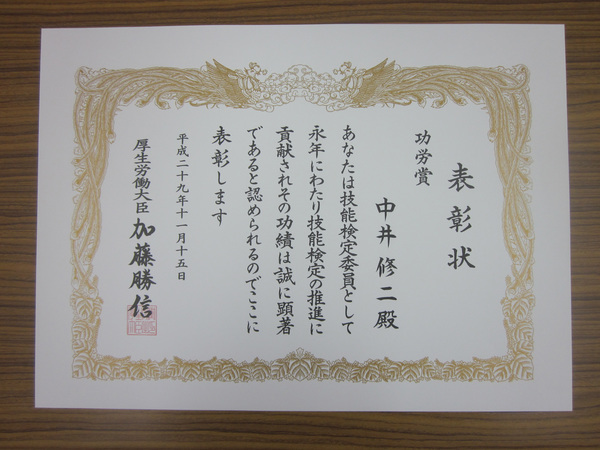 表彰状
功労賞
中井修二殿
あなたは技能検定委員として
永年にわたり技能検定の推進に
貢献されその功績は誠に顕著
であると認められるのでここに
表彰します
平成二十九年十一月十五日
厚生労働大臣 加藤勝信